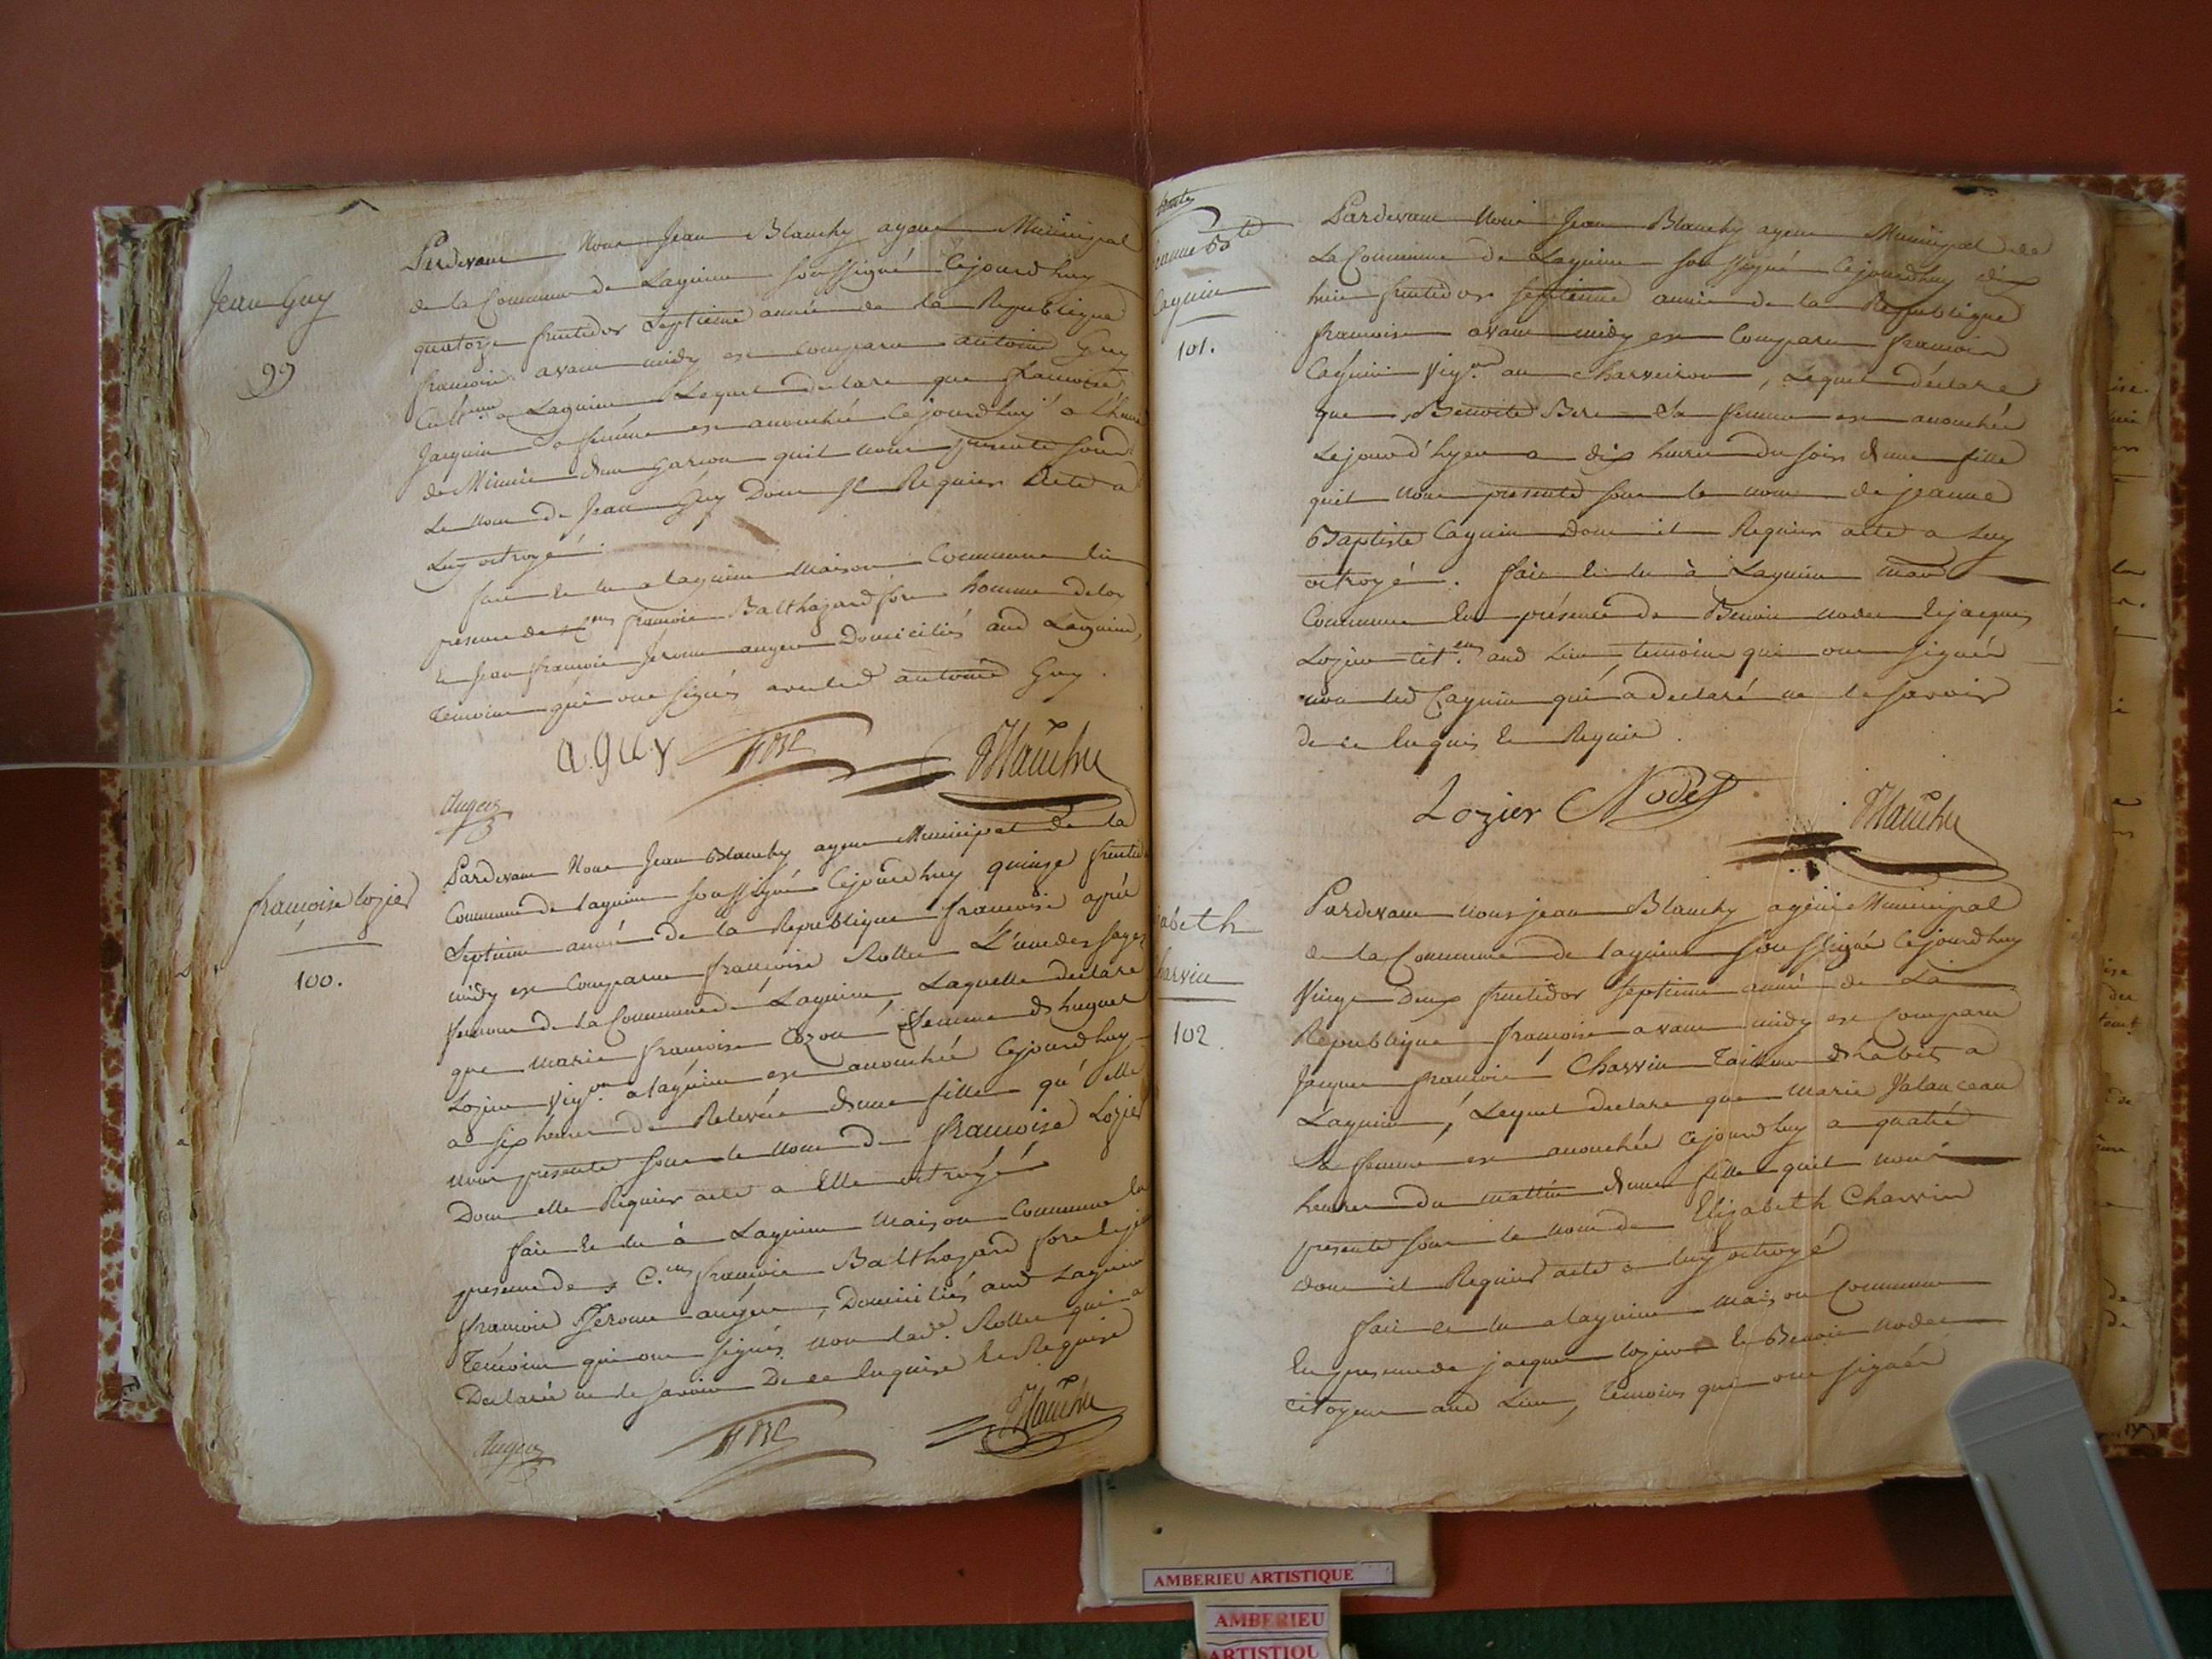 Jean Guy
99
Pardevant Nous Jean Blanchy agent Municipal
de la Commune de Lagnieu soussigné Cejourdhuy
quatorze fructidor Septieme année de la Republique
francoise avant midy est comparu antoine Guy
Cult.eur a Lagnieu Lequel declare que francoise
Jacquin Sa femme est accouchée Cejourdhuy a l'heure
de Minuit dun garcon quil nous presente sous
Le nom de Jean Guy Dont Il Requiert Acte a
Luy octroyé
fait et lu a lagnieu Maison Commune En
presence des C.ens francois Balthazard fore homme de loy
et Jean francois Jerome auger Domiciliés aud Lagnieu,
temoins qui ont signés avec led antoine Guy.
a. guy fore Blanchy
Auger
francoise lozier
100.
Pardevant Nous Jean Blanchy agent Municipal de la
Commune de lagnieu soussigné Cejourdhuy quinze fructid
Septieme année de la Republique francoise après
midy est Comparue francoise Rollet L'une des sages
femmes de la Commune de Lagnieu, Laquelle declare
que marie francoise Cozon femme d'hugues
Lozier Vig.on a lagnieu est accouchée Cejourdhuy
a six heures de Relevée d'une fille qu'elle
nous presente sous le nom de francoise Lozier
Dont elle Requiert acte a Elle octroyé
fait et lu à Lagnieu Maison Commune En
presence des C.ens francois Balthazard fore et j
francois Jerome auger, Domiciliés aud Lagnieu
Temoins qui ont signés non lad.e Rollet qui a
Declarée ne le savoir De ce Enquise et Requise
Auger fore Blanchy
Jeanne B.te
Cagnin
101.
Pardevant Nous Jean Blanchy agent Municipal de
La Commune de Lagnieu soussigné Cejourdhuy dix
huit fructidor septieme année de la Republique
francoise avant midy est Comparu francois
Cagnin Vig.on au Charveiron, Lequel déclare
que Benoite Bere Sa femme est accouchée
Lejourd'hyer a dix heures du soir d'une fille
quil nous presente sous le nom de jeanne
Baptiste Cagnin Dont il Requiert acte a Luy
octroyé. fait et lu à Lagnieu maison
Commune En présence de Benoit nodet et jacques
Lozier cit.ens aud Lieu temoins qui ont signés
non led Cagnin qui a declaré ne le savoir
de ce Enquis et Requis.
Lozier Nodet Blanchy
abeth
harvin
102.
Pardevant nous jean Blanchy agent Municipal
de la Commune de lagnieu soussigné Cejourdhuy
Vingt Deux fructidor septieme année de La
Republique francoise avant midy est comparu
Jacques francois Charvin Tailleur d'habits a
Lagnieu, Lequel declare que Marie Valanceau
Sa femme est accouchée Cejourdhuy a quatre
heures du mattin d'une fille quil nous
presente sous le nom de Elizabeth Charvin
dont il Requiert acte a luy octroyé
fait et lu a lagnieu maison commune
En presence de jacques lozier et Benoit nodet
citoyens aud Lieu, temoins qui ont signés
AMBERIEU ARTISTIQUE
AMBERIEU
ARTISTIQU